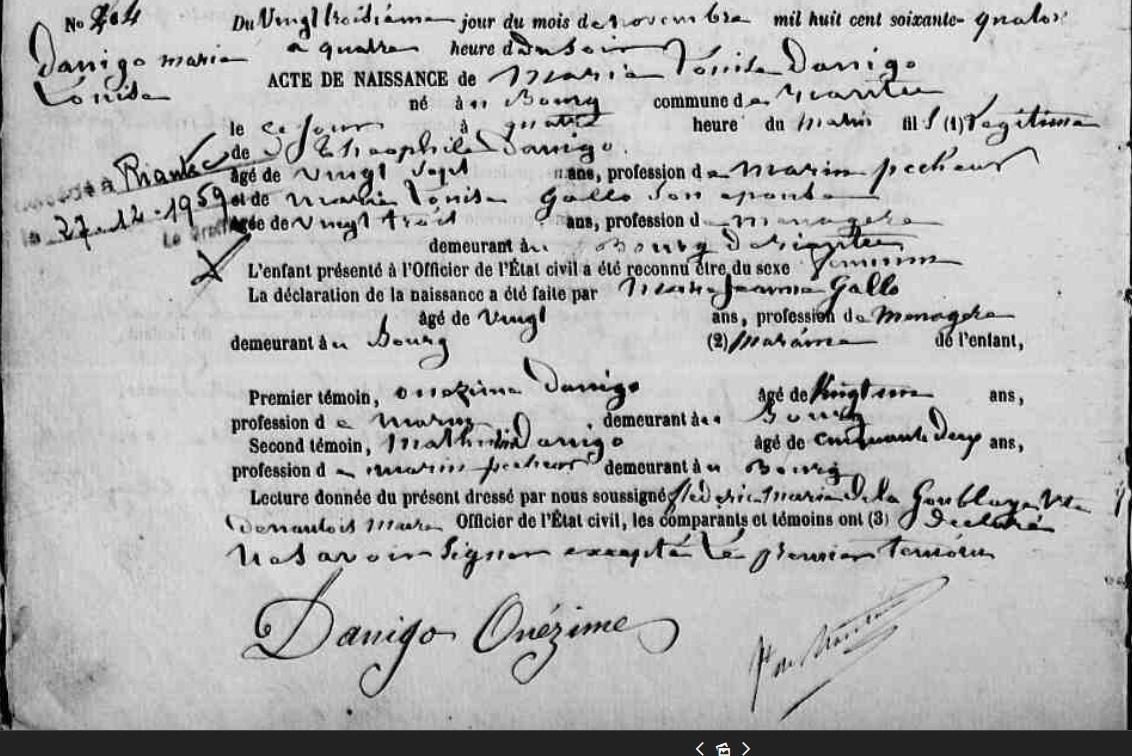 No 204 Du Vingt troisième jour du mois de novembre mil huit cent soixante-quator
à quatre heure du soir
Danigo maria
Louise
ACTE DE NAISSANCE de Maria Louise Danigo
né à au Bourg commune de Riantec
le ce jour à quatre heure du matin fils (1) Légitime
de Théophile Danigo.
âgé de vingt sept ans, profession de marin pecheur
à Riantec
27-12-1959
et de maria Louise Gallo son epouse
âgée de Vingt trois ans, profession de menagere
demeurant à Bourg de Riantec
L'enfant présenté à l'Officier de l'État civil a été reconnu être du sexe feminin
La déclaration de la naissance a été faite par Marie Jeanne Gallo
âgé de vingt ans, profession de Menagere
demeurant à au Bourg (2) de l'enfant,
Premier témoin, onezime Danigo âgé de Vingt un ans,
profession de marin, demeurant à au Bourg
Second témoin, Danigo âgé de cinquante deux ans,
profession de marin pecheur demeurant à au Bourg
Lecture donnée du présent dressé par nous soussigné frederic maria De la
maire Officier de l'État civil, les comparants et témoins ont (3) Declaré
ne savoir signer excepté le premier temoin
Danigo Onézime